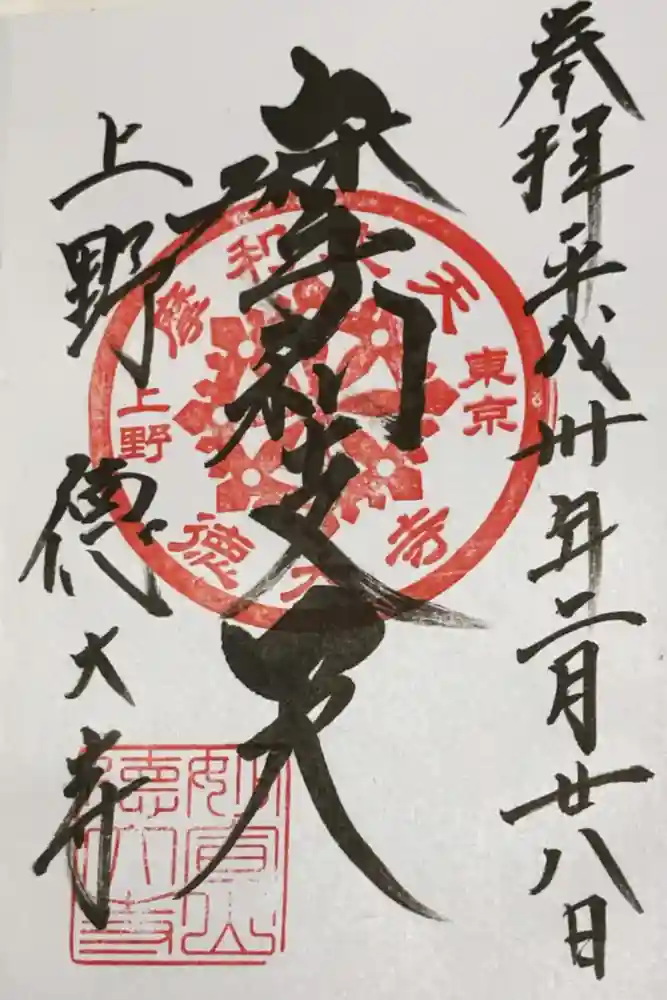 奉拝平成卅年二月廿八日
摩利支天
上野徳大寺
摩利支天
東京
上野
徳大寺
妙宣山
徳大寺